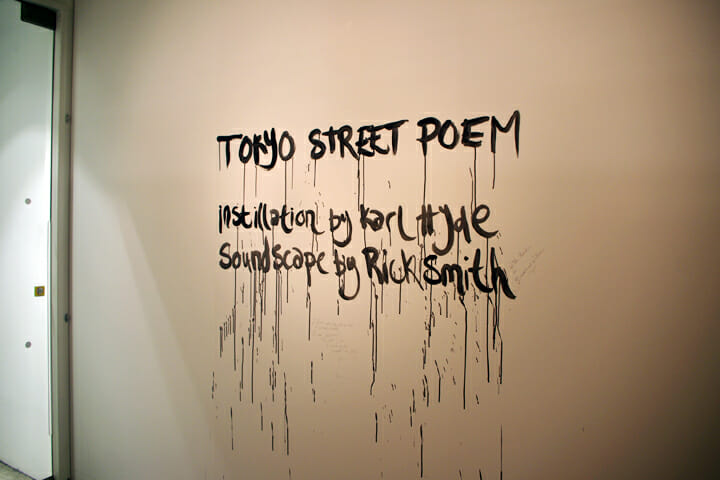 TOKYO STREET POEM
instillation by Karl Hyde
Soundscape by Rick Smith